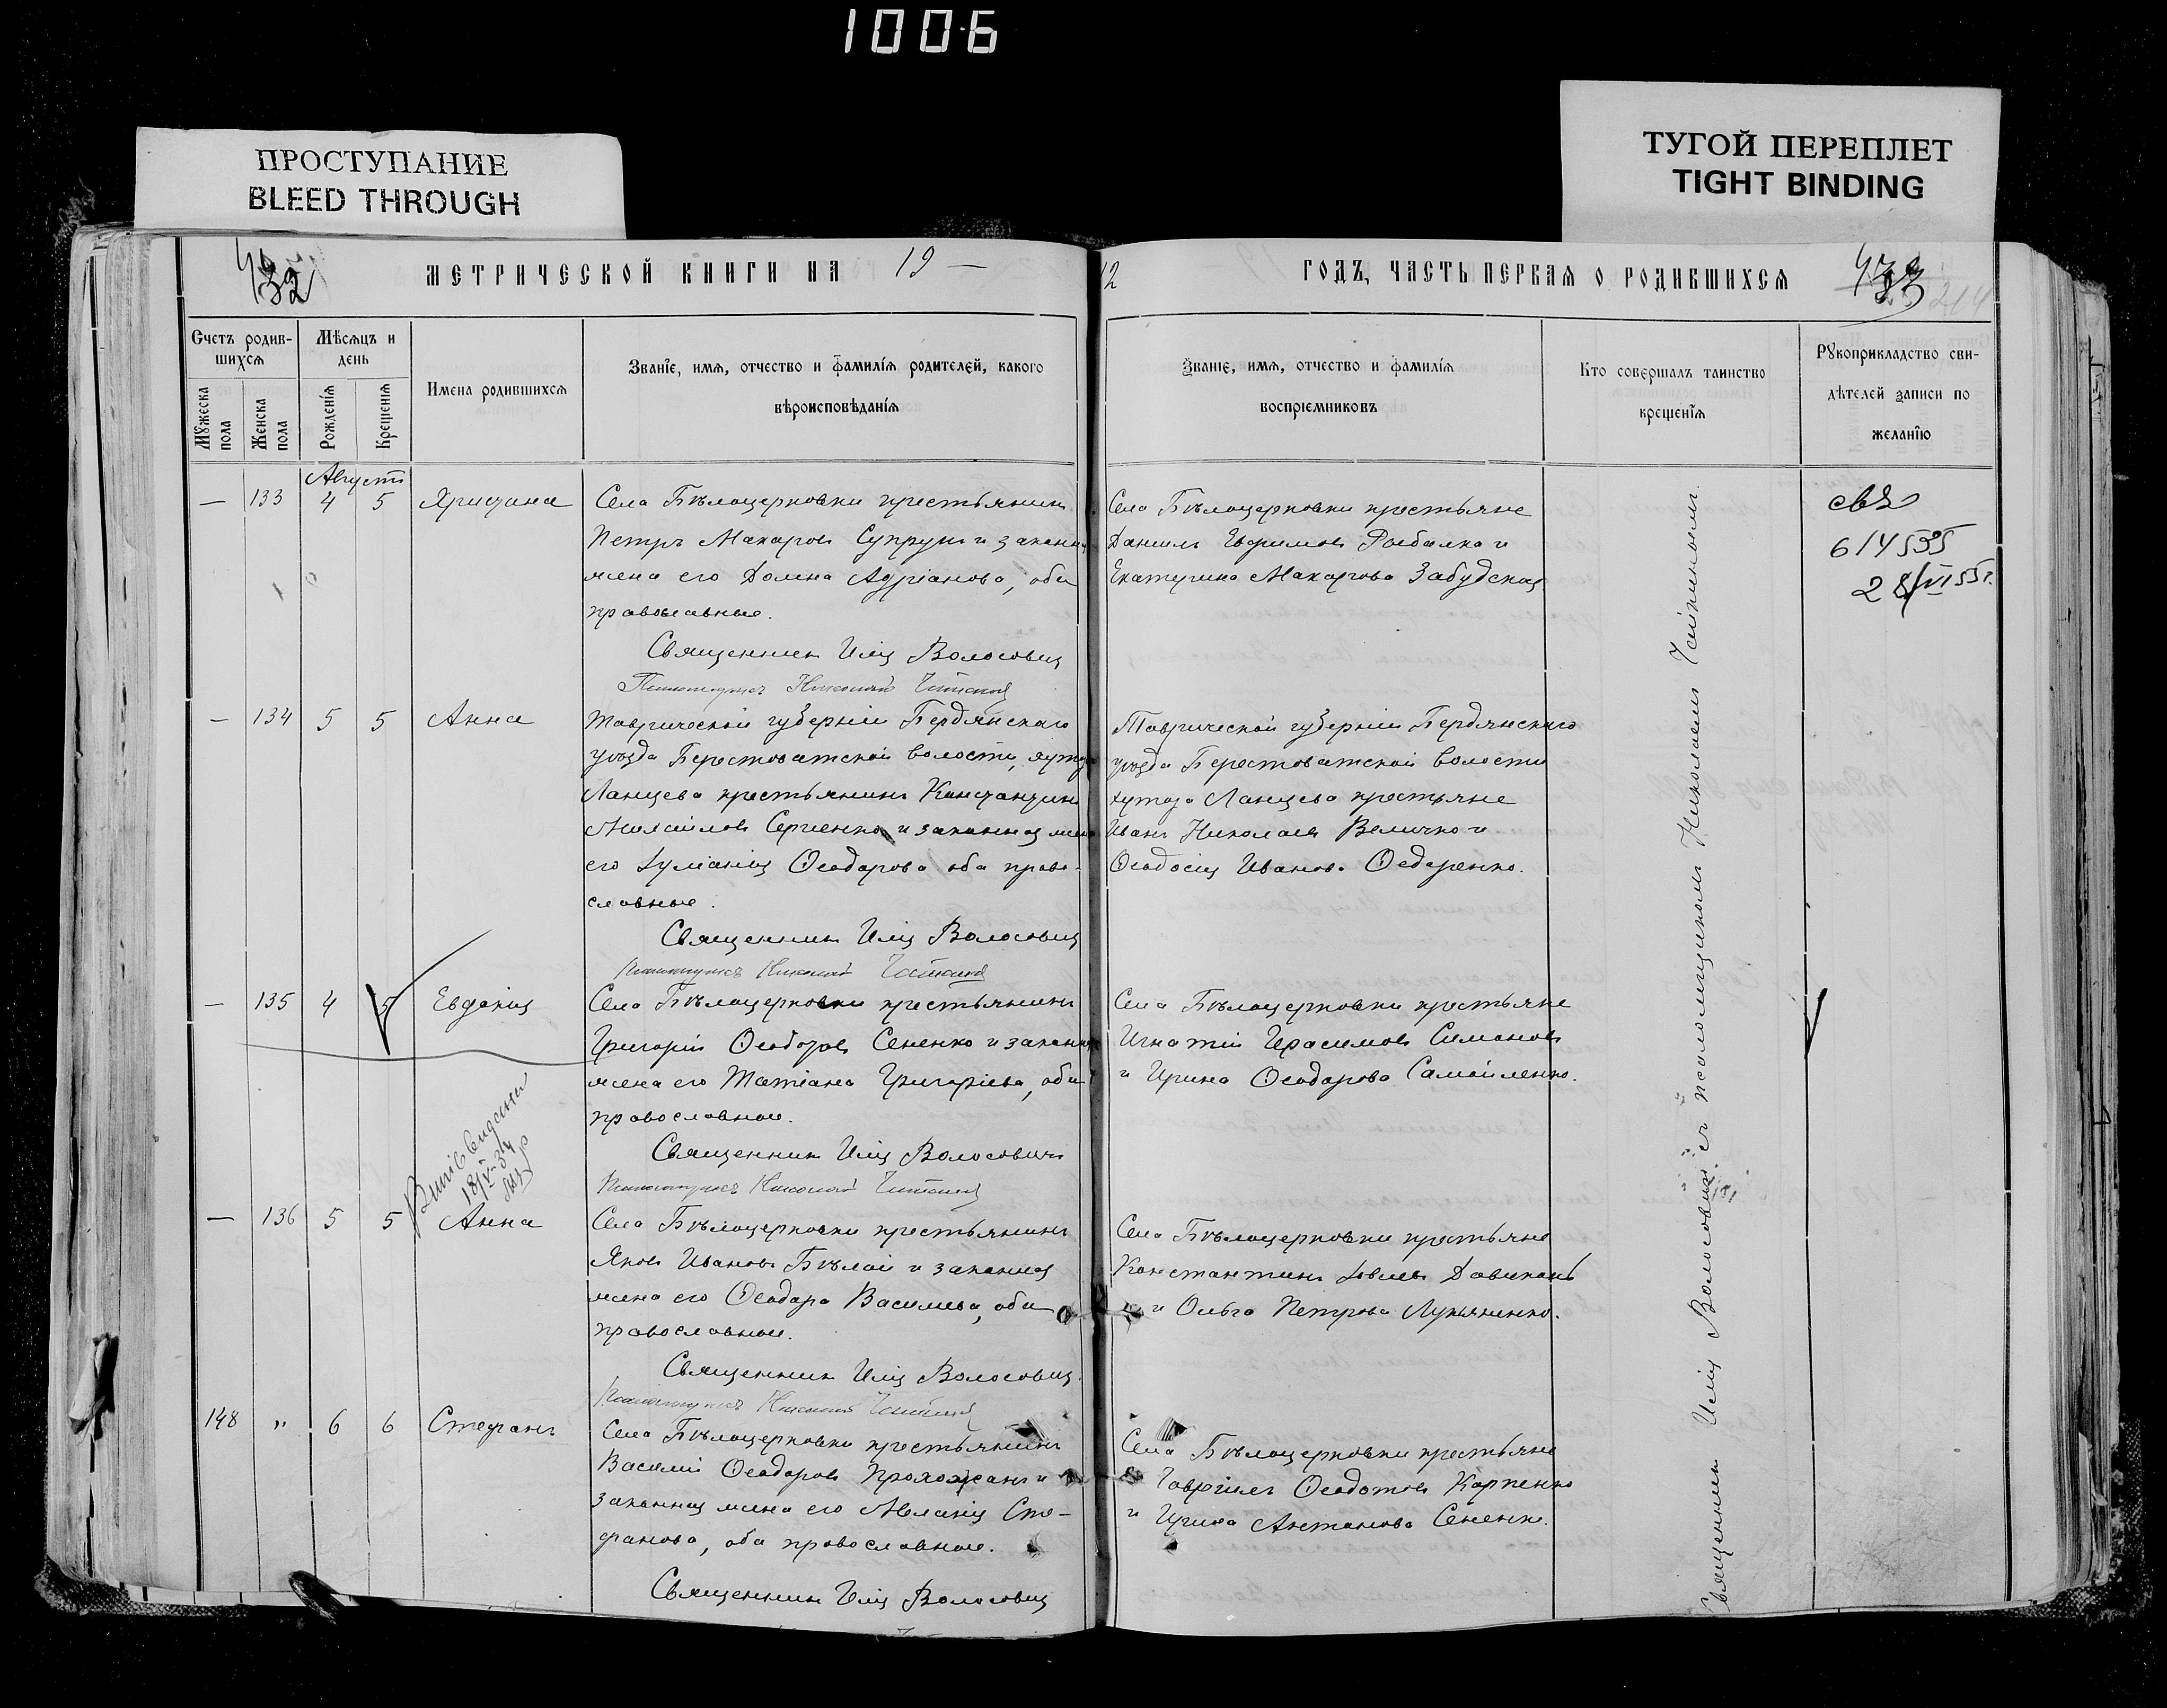 1006
ПРОСТУПАНИЕ
BLEED THROUGH
ТУГОЙ ПЕРЕПЛЕТ
TIGHT BINDING
32
МЕТРИЧЕСКОЙ КНИГИ НА 19 —
12 ГОДЪ, ЧАСТЬ ПЕРВАЯ О РОДИВШИХСЯ
33
214
Счетъ родив-
шихся
Мужеска
пола
Женска
пола
Мѣсяцъ и
день
Рожденїя
Крещенїя
Имена родившихся
Званїе, имя, отчество и фамилїя родителей, какого
вѣроисповѣданїя
Званїе, имя, отчество и фамилїя
воспрїемниковъ
Кто совершалъ таинство
крещенїя
Рукоприкладство сви-
дѣтелей записи по
желанїю
Августъ
— 133 4 5
Села Бѣлоцерковки крестьянинъ
Петръ Макаровъ Супрунъ и законная
жена его Домна Адріанова, оба
православные.
Священникъ Илія Волосовичъ
Псаломщикъ Николай
Села Бѣлоцерковки крестьяне
Даніилъ Ефимовъ Рыбалка и
Екатерина Макарова Забудская
свд
614535
28/VI 55г.
— 134 5 5 Анна
Таврической губерніи Бердянскаго
уѣзда Берестоватской волости, хутора
Ланцева крестьянинъ Константинъ
Михаиловъ Сергіенко и законная жена
его Іуліанія Ѳеодорова оба право-
славные.
Священникъ Илія Волосовичъ
Псаломщикъ Николай
Таврической губерніи Бердянскаго
уѣзда Берестоватской волости
хутора Ланцева крестьяне
Иванъ Николаевъ Величко и
Ѳеодосія Иванова Ѳедоренко.
— 135 4 5 Евдокія
Села Бѣлоцерковки крестьянинъ
Григорій Ѳеодоровъ Сененко и законная
жена его Татіана Григоріева, оба
православные.
Священникъ Илія Волосовичъ
Псаломщикъ Николай
Села Бѣлоцерковки крестьяне
Игнатій Герасимовъ Симоновъ
и Ирина Ѳеодорова Самойленко.
18/V-34
— 136 5 5 Анна
Села Бѣлоцерковки крестьянинъ
Яковъ Ивановъ Бѣлай и законная
жена его Ѳеодора Василіева, оба
православные.
Священникъ Илія Волосовичъ
Псаломщикъ Николай
Села Бѣлоцерковки крестьяне
Константинъ Іовлевъ
и Ольга Петрова Лукьяненко.
148 " 6 6 Стефанъ
Села Бѣлоцерковки крестьянинъ
Василій Ѳеодоровъ Прохожанъ и
законная жена его Меланія Сте-
фанова, оба православные.
Священникъ Илія Волосовичъ
Села Бѣлоцерковки крестьяне
Гавріилъ Ѳеодотовъ Карпенко
и Ирина Антонова Сененко.
Священникъ Илія Волосовичъ съ псаломщикомъ Николаемъ